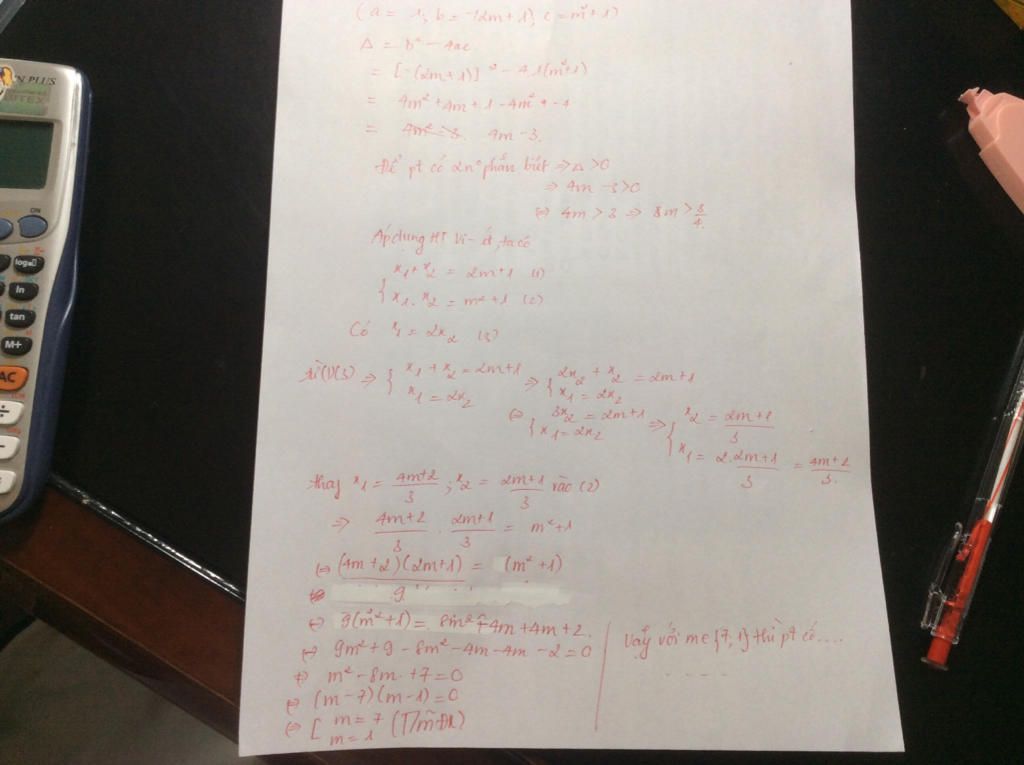 (a = 1; b = -(2m+1); c = m²+1)
Δ = b² - 4ac
= [-(2m+1)]² - 4.1(m²+1)
= 4m² + 4m + 1 - 4m² - 4
= 4m - 3.
Để pt có 2n° phân biệt => Δ > 0
=> 4m - 3 > 0
<=> 4m > 3 => m > 3/4.
Áp dụng HT Vi-ét, ta có
{ x₁ + x₂ = 2m+1 (1)
x₁. x₂ = m²+1 (2)
Có x₁ = 2x₂ (3)
từ (1)(3) => { x₁ + x₂ = 2m+1 => { 2x₂ + x₂ = 2m+1
x₁ = 2x₂ x₁ = 2x₂
<=> { 3x₂ = 2m+1 => { x₂ = (2m+1)/3
x₁ = 2x₂ x₁ = 2.(2m+1)/3 = (4m+2)/3.
thay x₁ = (4m+2)/3 ; x₂ = (2m+1)/3 vào (2)
=> (4m+2)/3 . (2m+1)/3 = m²+1
<=> (4m+2)(2m+1)/9 = (m²+1)
<=> 9(m²+1) = 8m² + 4m + 4m + 2.
<=> 9m² + 9 - 8m² - 4m - 4m - 2 = 0
<=> m² - 8m + 7 = 0
<=> (m-7)(m-1) = 0
<=> [ m = 7 (T/m ĐK)
m = 1
Vậy với m ∈ {7; 1} thì pt có....
- - - -
N PLUS
VITEX
ON
log
ln
tan
M+
AC
÷
-
=